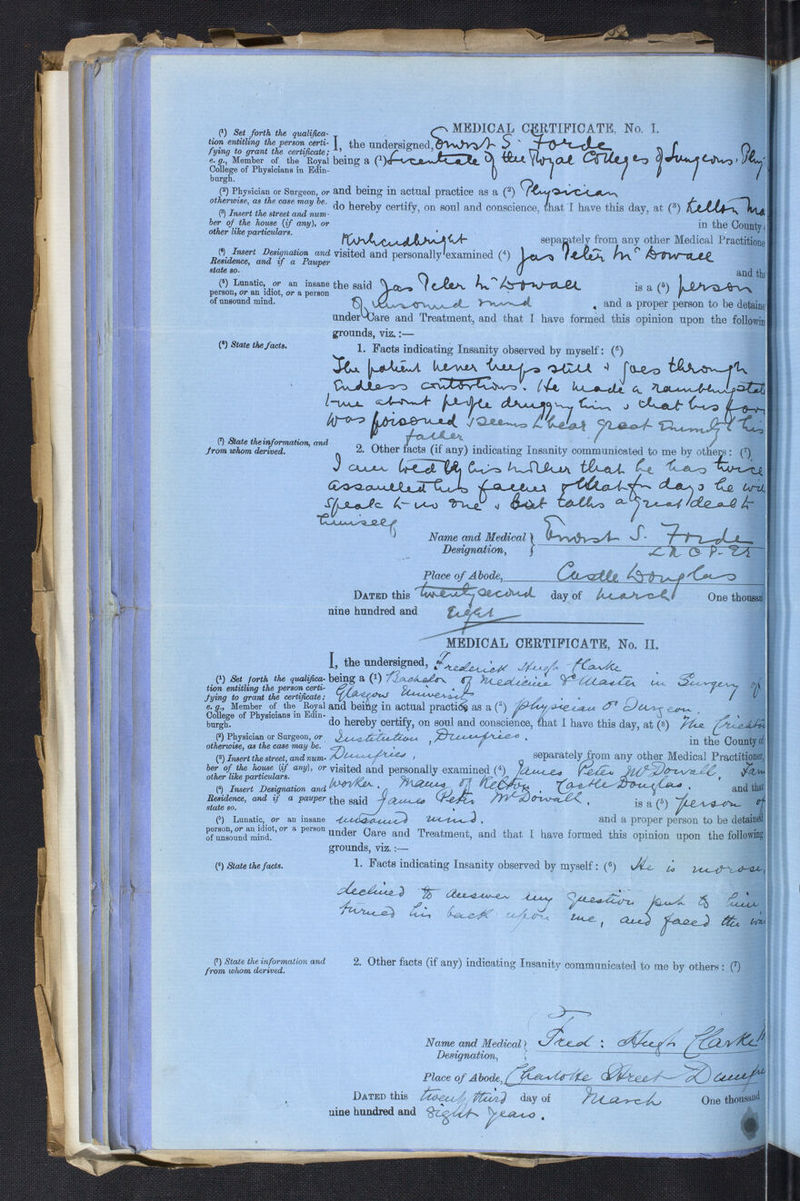 MEDICAL CERTIFICATE, No. I.
(1) Set forth the qualifica-
tion entitling the person certi-
fying to grant the certificate;
e.g., Member of the Royal
College of Physicians in Edin-
burgh.
(2) Physician or Surgeon, or
otherwise, as the case may be.
(3) Insert the street and num-
ber of the house (if any), or
other like particulars.
(4) Insert Designation and
Residence, and if a Pauper
state so.
(5) Lunatic, or an insane
person, or an idiot, or a person
of unsound mind.
(6) State the facts.
(7) State the information, and
from whom derived.
I, the undersigned, Ernest S. Forde
being a (1) Licentiate of the Royal Colleges of Surgeons
and being in actual practice as a (2) Physician
do hereby certify, on soul and conscience, that I have this day, at (3) Kelton
in the County
Kirkcudbright separately from any other Medical Practitione
visited and personally examined (4) Jas Peter McDowall
and th
the said Jas Peter McDowall is a (5) person
of unsound mind, and a proper person to be detaine
under Care and Treatment, and that I have formed this opinion upon the followin
grounds, viz.:—
1. Facts indicating Insanity observed by myself: (6)
The patient never keeps still & goes through
Endless contortions. He made a rambling state
-ment about people drugging him & that his
was poisoned & seems to bear great Enmity to his
father
2. Other facts (if any) indicating Insanity communicated to me by others: (7)
I am told by his mother that he has twice
assaulted his father & that for days he
speak to no one & but talks a great deal to
himself
Name and Medical Designation, Ernest S. Forde
L R C P
Place of Abode, Castle Douglas
DATED this twenty second day of March One thousan
nine hundred and Eight
MEDICAL CERTIFICATE, No. II.
(1) Set forth the qualifica-
tion entitling the person certi-
fying to grant the certificate;
e.g., Member of the Royal
College of Physicians in Edin-
burgh.
(2) Physician or Surgeon, or
otherwise, as the case may be.
(3) Insert the street, and num-
ber of the house (if any), or
other like particulars.
(4) Insert Designation and
Residence, and if a pauper
state so.
(5) Lunatic, or an insane
person, or an idiot, or a person
of unsound mind.
(6) State the facts.
(7) State the information and
from whom derived.
I, the undersigned, Frederick Hugh Clarke
being a (1) Bachelor of Medicine & Master in Surgery of
Glasgow University
and being in actual practice as a (2) physician & Surgeon
do hereby certify, on soul and conscience, that I have this day, at (3) The Crichton
Institution, Dumfries. in the County of
Dumfries, separately from any other Medical Practitioner,
visited and personally examined (4) James Peter McDowall,
worker, Mains of Kelton, Castle Douglas. and that
the said James Peter McDowall, is a (5) person of
unsound mind, and a proper person to be detained
under Care and Treatment, and that I have formed this opinion upon the following
grounds, viz.:—
1. Facts indicating Insanity observed by myself: (6) He is morose,
declined to answer any question put to him
turned his back upon me, and faced the
2. Other facts (if any) indicating Insanity communicated to me by others: (7)
Name and Medical Designation, Fred: Hugh Clarke
Place of Abode, Charlotte Street Dumfri
DATED this twenty third day of March One thousand
nine hundred and Eight years.